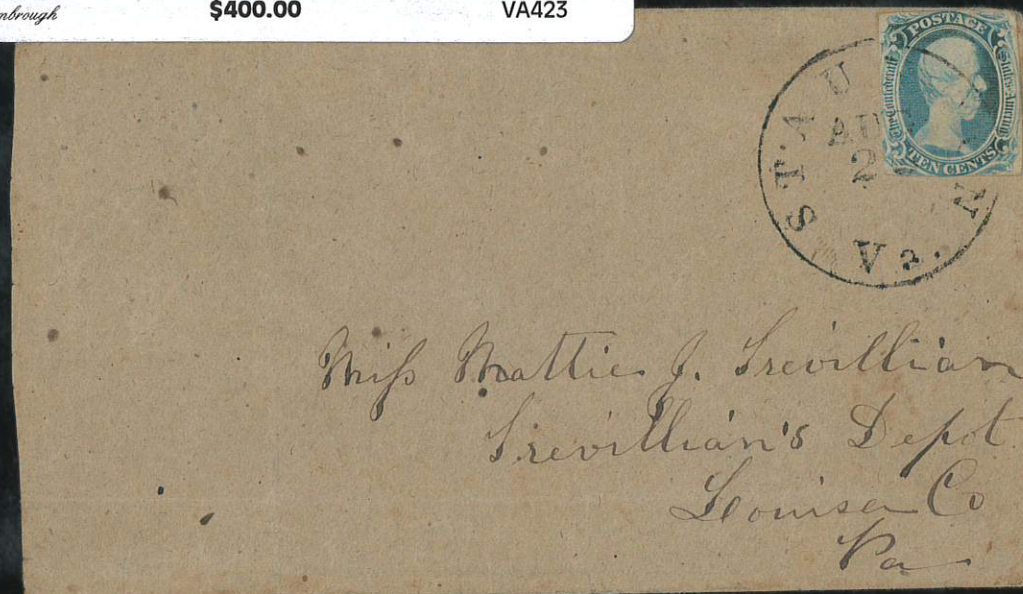 $400.00 VA423
POSTAGE
The Confederate States of America
TEN CENTS
STAUN N
AU
2
Va.
Miss Mattie J. Trevillian
Trevillian's Depot
Louisa Co
Va